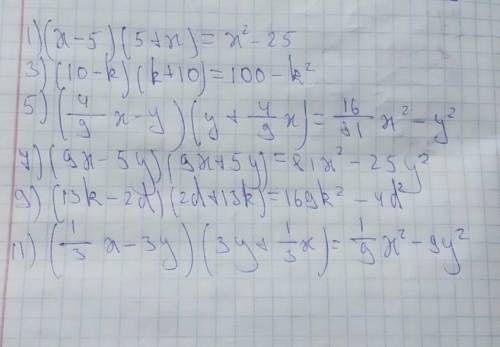 1) (x-5)(5+x)=x²-25
3) (10-k)(k+10)=100-k²
5) (4/9 x-y)(y+4/9 x)=16/81 x²-y²
7) (9x-5y)(9x+5y)=81x²-25y²
9) (13k-2d)(2d+13k)=169k²-4d²
11) (1/3 x-3y)(3y+1/3 x)=1/9 x²-9y²